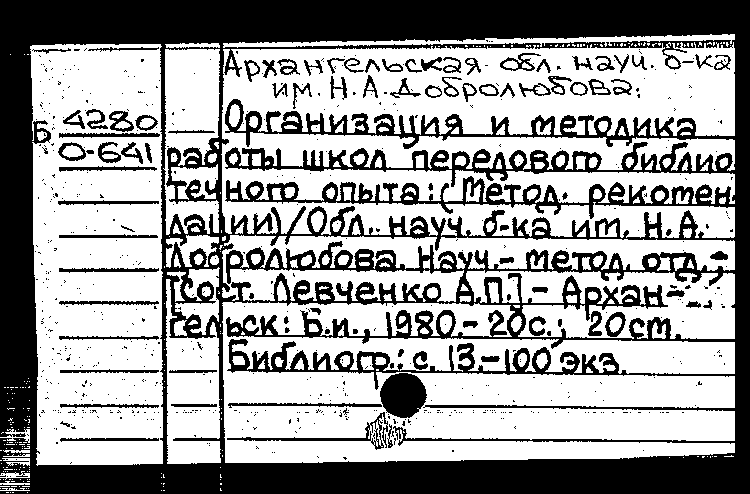 Архангельская обл. науч. б-ка
им. Н.А. Добролюбова.
Б 4280
О-641
Организация и методика
работы школ передового библио
течного опыта: (Метод. рекомен-
дации)/Обл. науч. б-ка им. Н.А.
Добролюбова. Науч.- метод. отд.;
[Сост. Левченко А.П.].- Архан-
гельск: Б.и., 1980.- 20с.; 20см.
Библиогр.: с. 13.-100 экз.